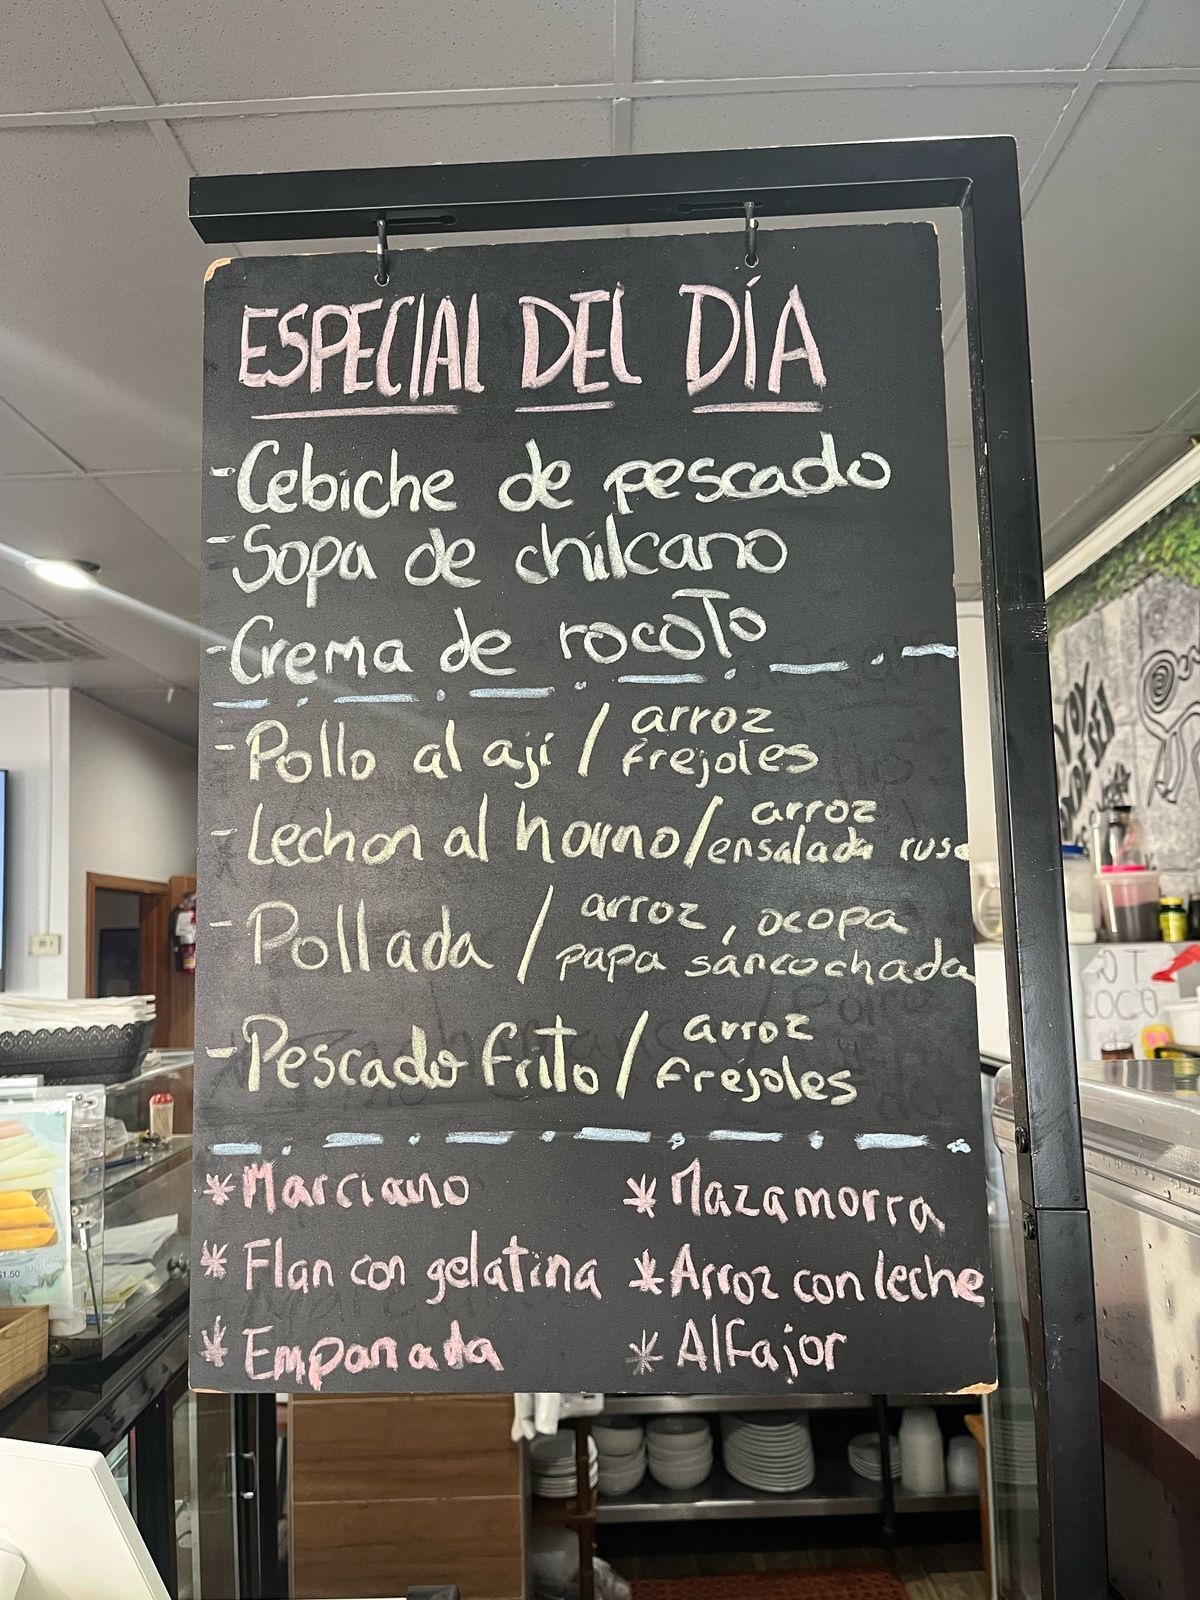 ESPECIAL DEL DÍA
- Cebiche de pescado
- Sopa de chilcano
- Crema de rocoTo
- Pollo al ají / arroz
frejoles
- Lechon al horno / arroz
ensalada rusa
- Pollada / arroz, ocopa
papa sancochada
- Pescado frito / arroz
frejoles
* Marciano
* Mazamorra
* Flan con gelatina
* Arroz con leche
* Empanada
* Alfajor
$1.50
GOT
LOCO